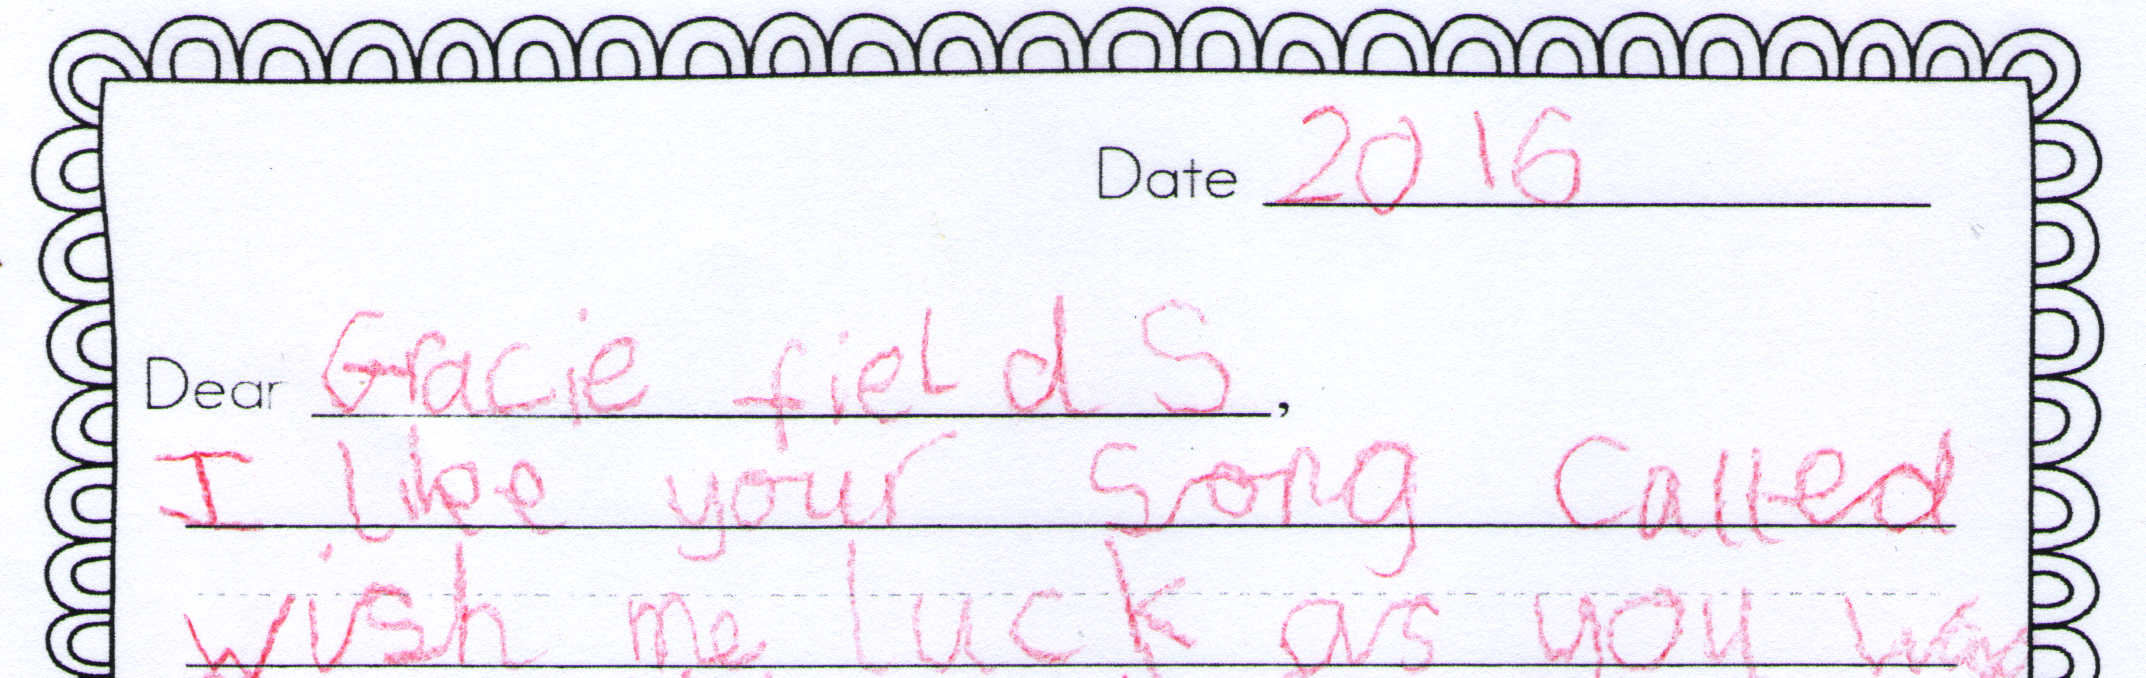 Date 2016
Dear Gracie fields,
I like your song called
wish me luck as you